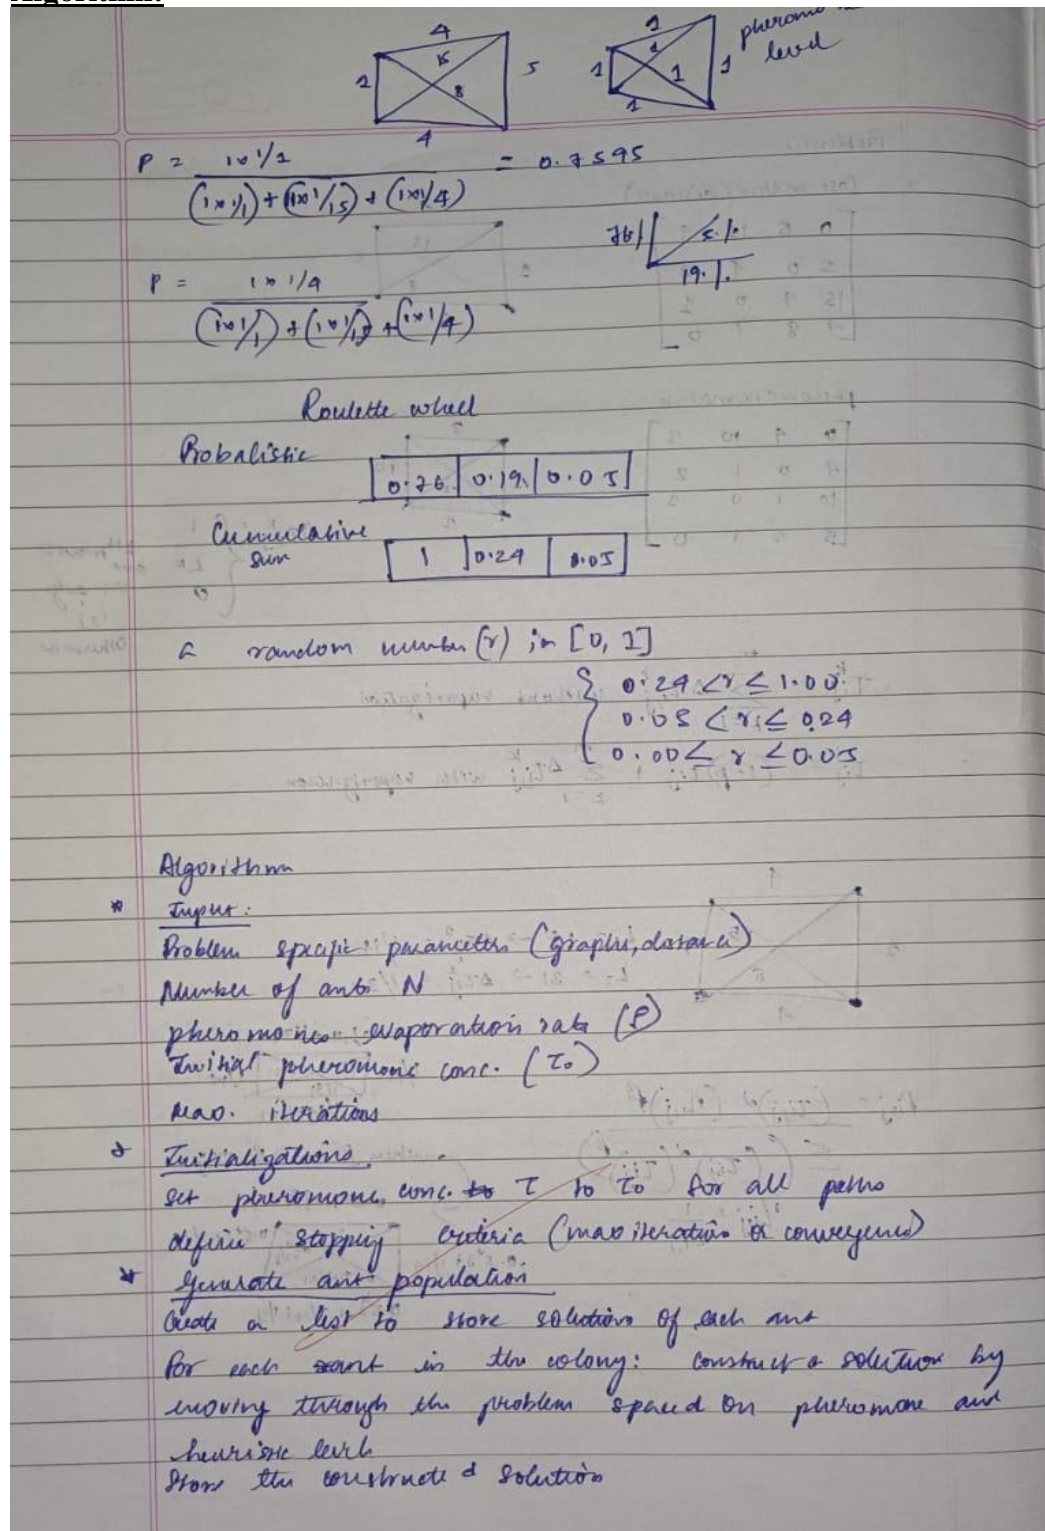 Algorithm:
4
15
2
8
5
4
1
1
1
1
1
1
level
P = 1x1/1 / (1x1/1) + (1x1/15) + (1x1/4) = 0.7595
76/
5./.
19./.
P = 1x1/4 / (1x1/1) + (1x1/15) + (1x1/4)
Roulette wheel
Probalistic
0.76 0.19 0.05
Cumulative
Sum
1 0.24 0.05
a random number (r) in [0, 1]
0.24 < r ≤ 1.00
0.05 < r ≤ 0.24
0.00 ≤ r ≤ 0.05
Algorithm
* Input:
Problem specific parameters (graphs,
Number of ants N
pheromones evaporation rate (ρ)
Initial pheromone conc. (τ₀)
max. iterations
* Initializations
set pheromone conc. τ to τ₀ for all paths
define stopping criteria (max iterations or
* Generate ant population
Create a list to store solutions of each ant
for each ant in the colony: construct a solution by
moving through the problem spaced on pheromone and
heuristic
Store the constructed solution